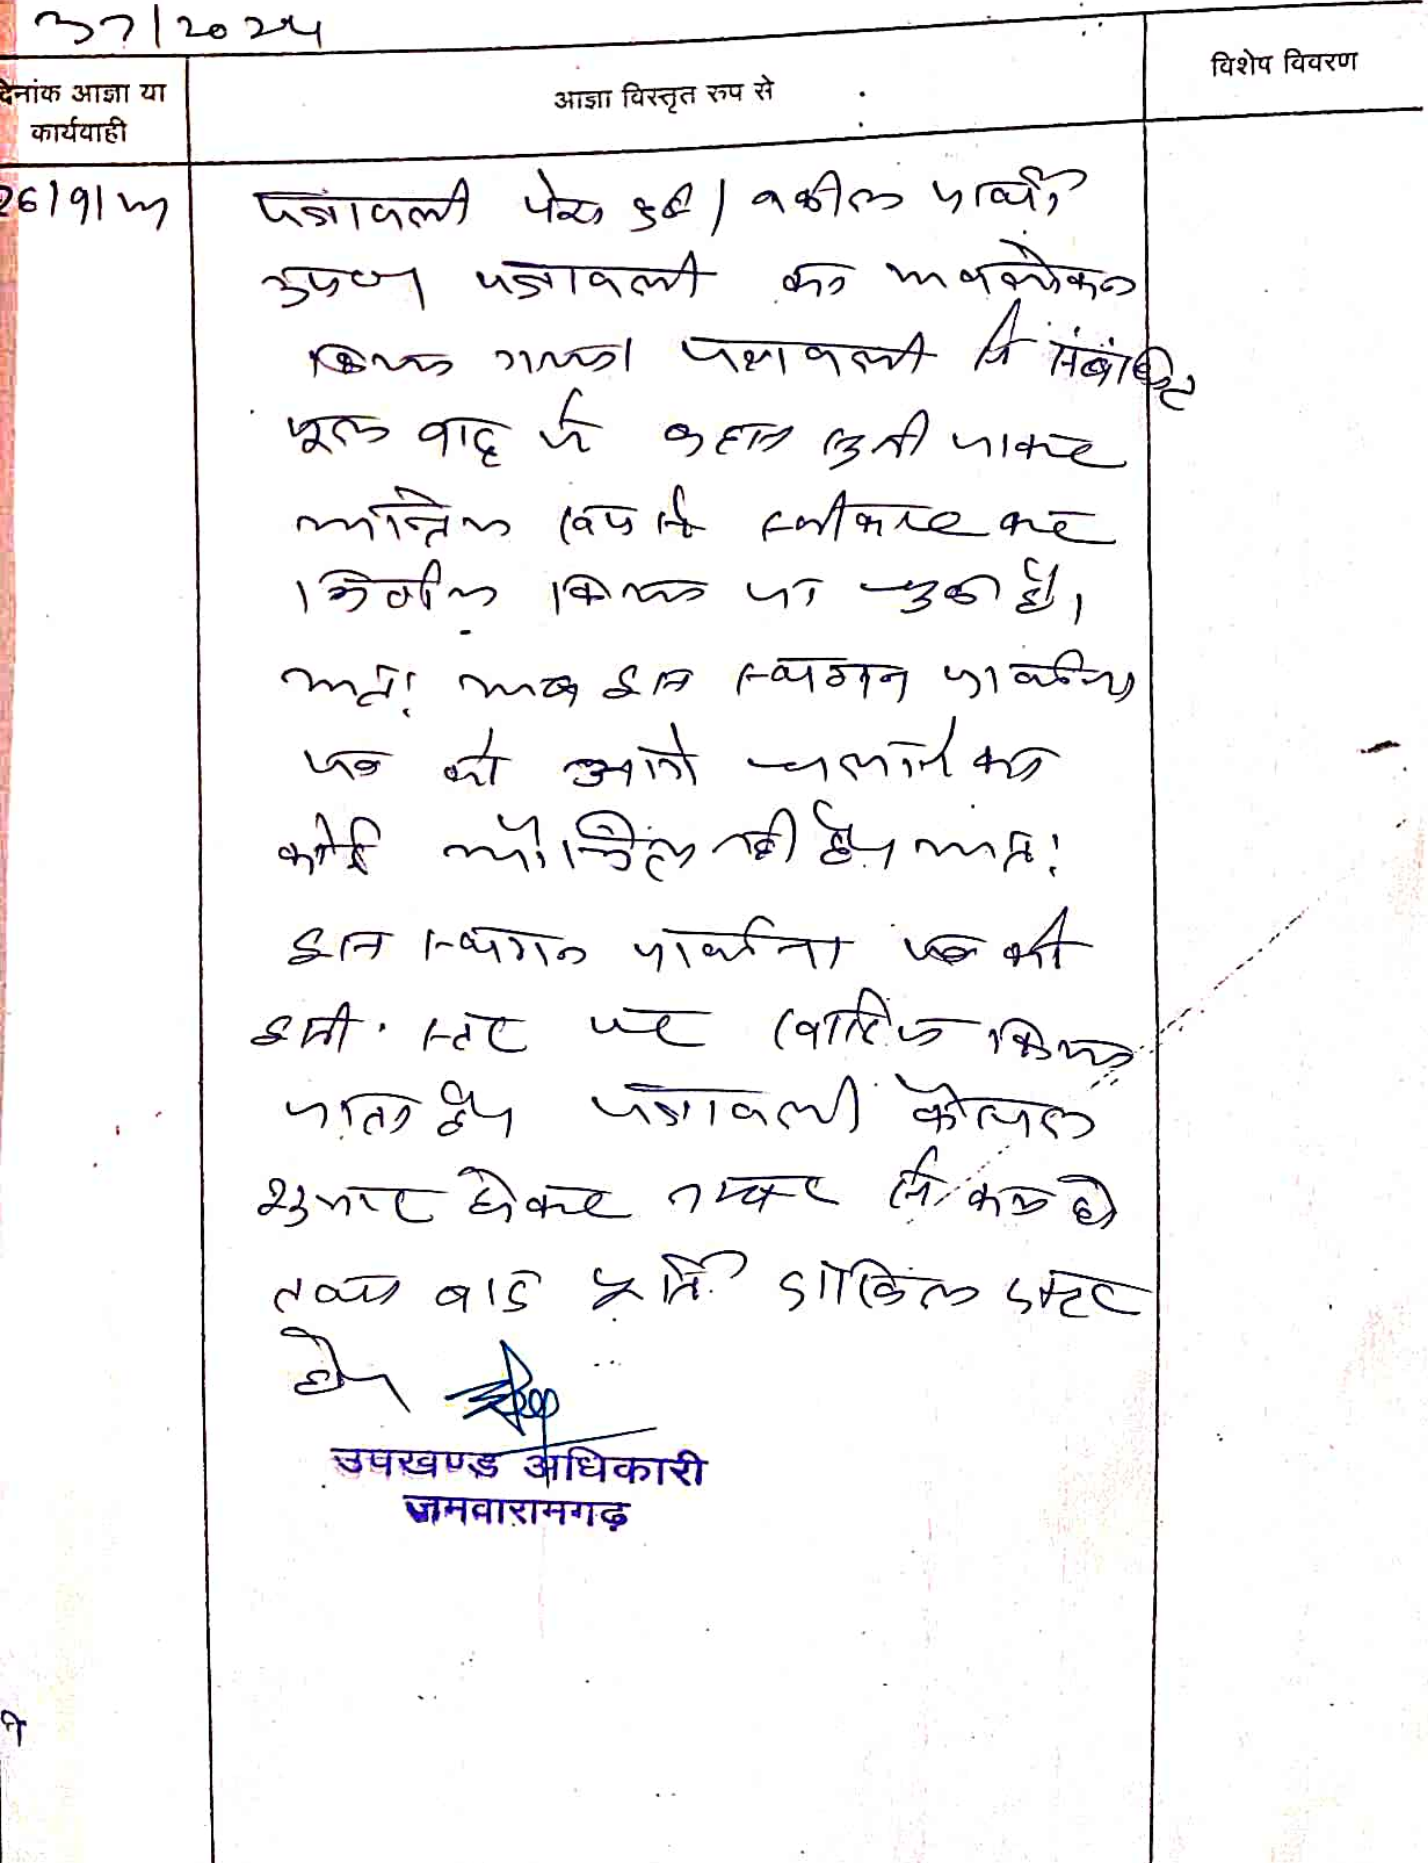 37/2024
दिनांक आज्ञा या
कार्यवाही
आज्ञा विस्तृत रुप से
विशेष विवरण
26/9/24
पत्रावली पेश हुई। वकील प्रार्थी
उप० पत्रावली का अवलोकन
किया गया। पत्रावली से संबंधित
मूल वाद में बहस सुनी जाकर
अन्तिम रूप से स्वीकार कर
निर्णय किया जा चुका है।
अतः अब इस स्थगन प्रार्थना
पत्र को आगे चलाने का
कोई औचित्य नही है। अतः
इस स्थगन प्रार्थना पत्र को
इसी स्तर पर खारिज किया
जाता है। पत्रावली फैसल
शुमार होकर नम्बर से कम हो
तथा बाद पूर्ति दाखिल दफ्तर
हो।
उपखण्ड अधिकारी
जमवारामगढ़